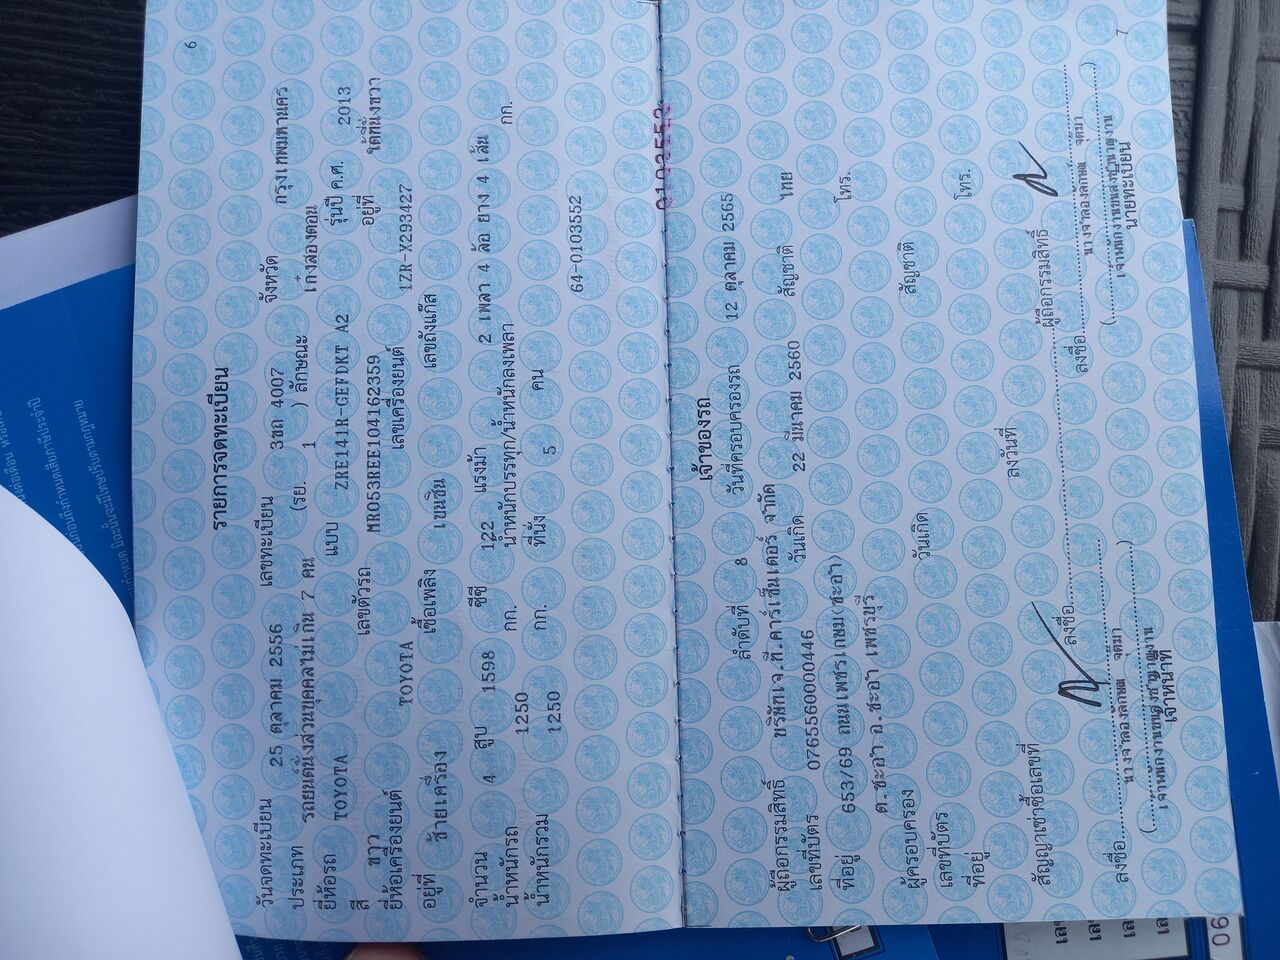 6
รายการจดทะเบียน
วันจดทะเบียน 25 ตุลาคม 2556 เลขทะเบียน 3ขถ 4007 จังหวัด กรุงเทพมหานคร
ประเภท รถยนต์นั่งส่วนบุคคลไม่เกิน 7 คน (รย. 1 ) ลักษณะ เก๋งสองตอน
ยี่ห้อรถ TOYOTA แบบ ZRE141R-GEFDKT A2 รุ่นปี ค.ศ. 2013
สี ขาว เลขตัวรถ MR053REE104162359 อยู่ที่ ใต้ที่นั่งขวา
ยี่ห้อเครื่องยนต์ TOYOTA เลขเครื่องยนต์ 1ZR-X293427
อยู่ที่ ซ้ายเครื่อง เชื้อเพลิง เบนซิน เลขถังแก๊ส
จำนวน 4 สูบ 1598 ซีซี 122 แรงม้า 2 เพลา 4 ล้อ ยาง 4 เส้น
น้ำหนักรถ 1250 กก. น้ำหนักบรรทุก/น้ำหนักลงเพลา กก.
น้ำหนักรวม 1250 กก. ที่นั่ง 5 คน
64-0103552
0103552
เจ้าของรถ
ลำดับที่ 8 วันที่ครอบครองรถ 12 ตุลาคม 2565
ผู้ถือกรรมสิทธิ์ บริษัทเจ.ที.คาร์เซ็นเตอร์ จำกัด
เลขที่บัตร 0765560000446 วันเกิด 22 มีนาคม 2560 สัญชาติ ไทย
ที่อยู่ 653/69 ถนนเพชรเกษม(ชะอำ) โทร.
ต.ชะอำ อ.ชะอำ เพชรบุรี
ผู้ครอบครอง
เลขที่บัตร วันเกิด สัญชาติ
ที่อยู่ โทร.
สัญญาเช่าซื้อเลขที่ ลงวันที่
ลงชื่อ ผู้ถือกรรมสิทธิ์
ลงชื่อ ลงชื่อ
เจ้าหน้าที่ นายทะเบียน
7